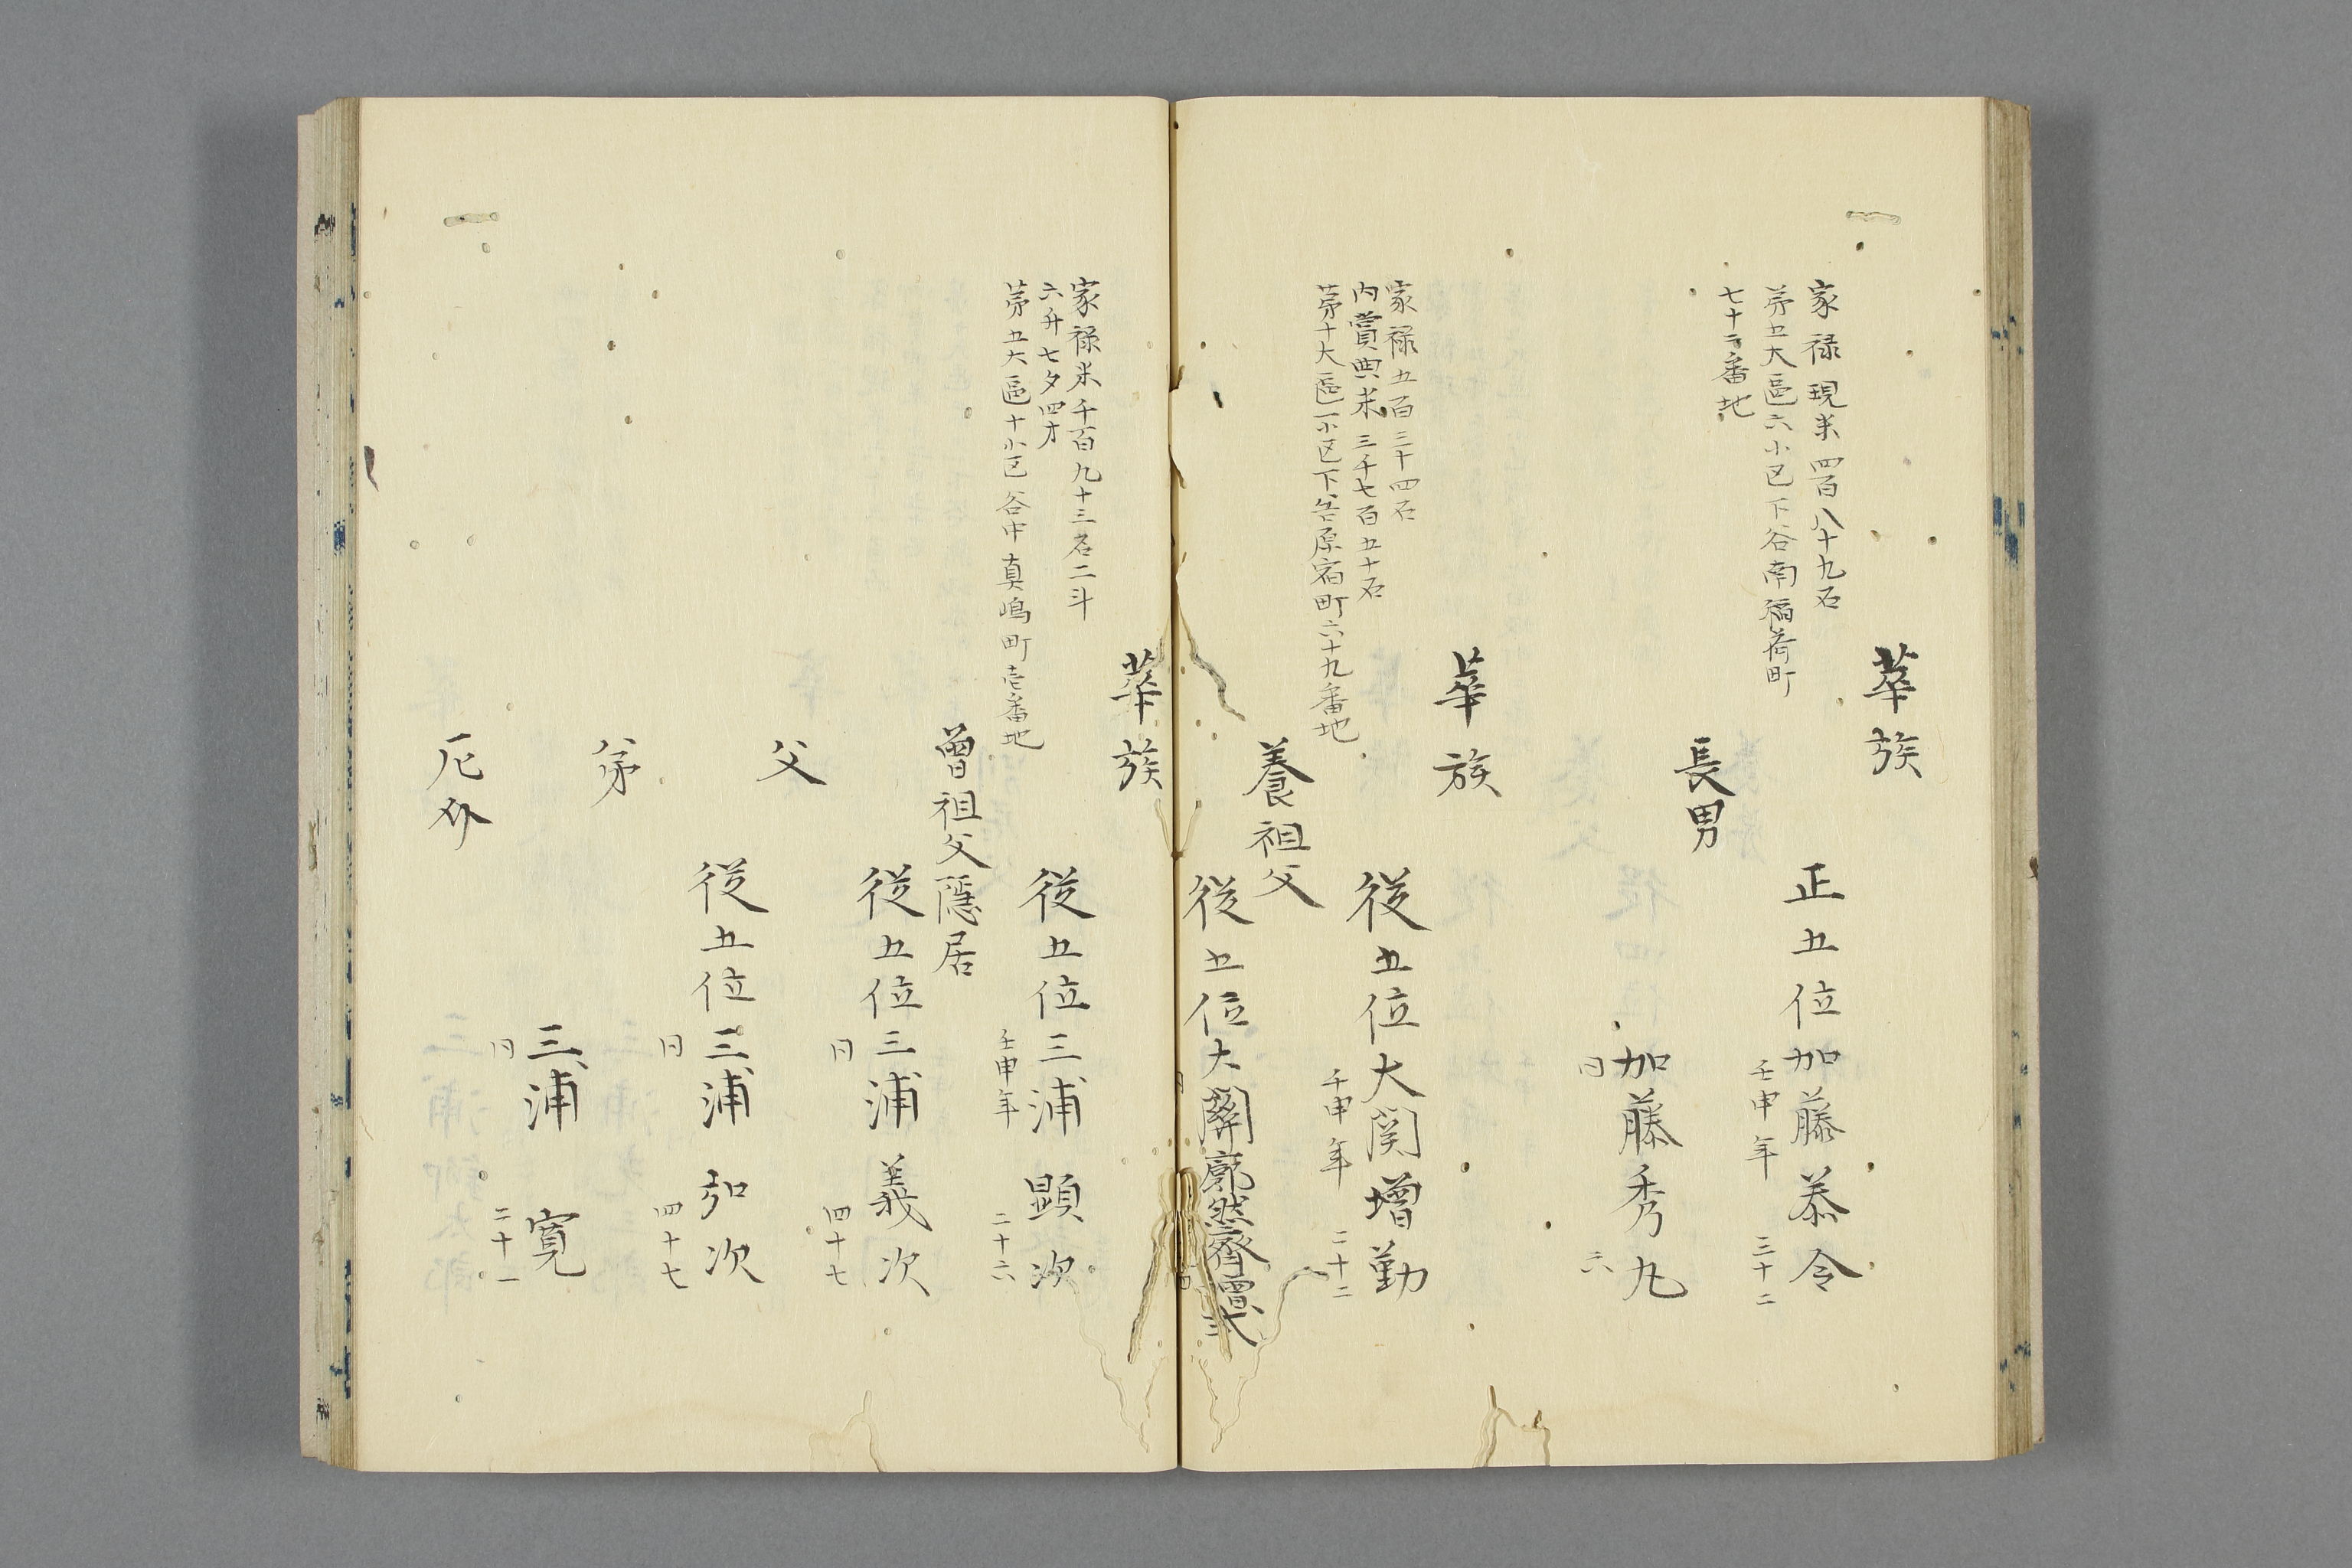 華族
家禄現米四百八十九石
第五大區六小区下谷南稲荷町
七十二番地
正五位加藤泰令
壬申年 三十二
長男
加藤秀丸
同 六
華族
家禄五百三十四石
内賞典米三千七百五十石
第十大區一小区下谷原宿町六十九番地
従五位大関増勤
壬申年 二十二
養祖父
従五位大關廓然齋増式
華族
家禄米千百九十三石二斗
六升七夕四才
第五大區十小区谷中真嶋町壱番地
従五位三浦顕次
壬申年 二十六
曽祖父隱居
従五位三浦義次
同 四十七
父
従五位三浦弘次
同 四十七
弟
三浦 寛
同 二十一
厄介